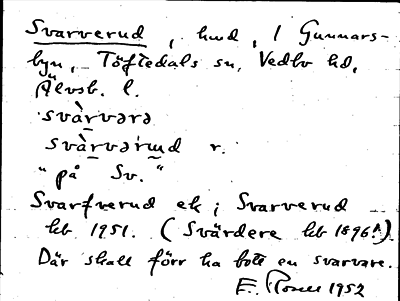 Svarverud, hmd, 1 Gunnars-
byn, Töftedals sn, Vedbo hd,
Älvsb. l.
svàrvərə
svàrvərud r.
"på Sv."
Svarfverud ek; Svarverud
kb 1951. (Svärdere kb 1896).
Där skall förr ha bott en svarvare.
E. 1952